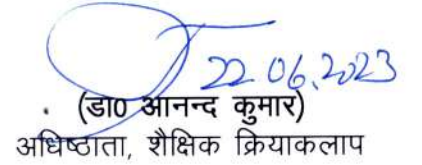 22.06.2023
(डा0 आनन्द कुमार)
अधिष्ठाता, शैक्षिक क्रियाकलाप